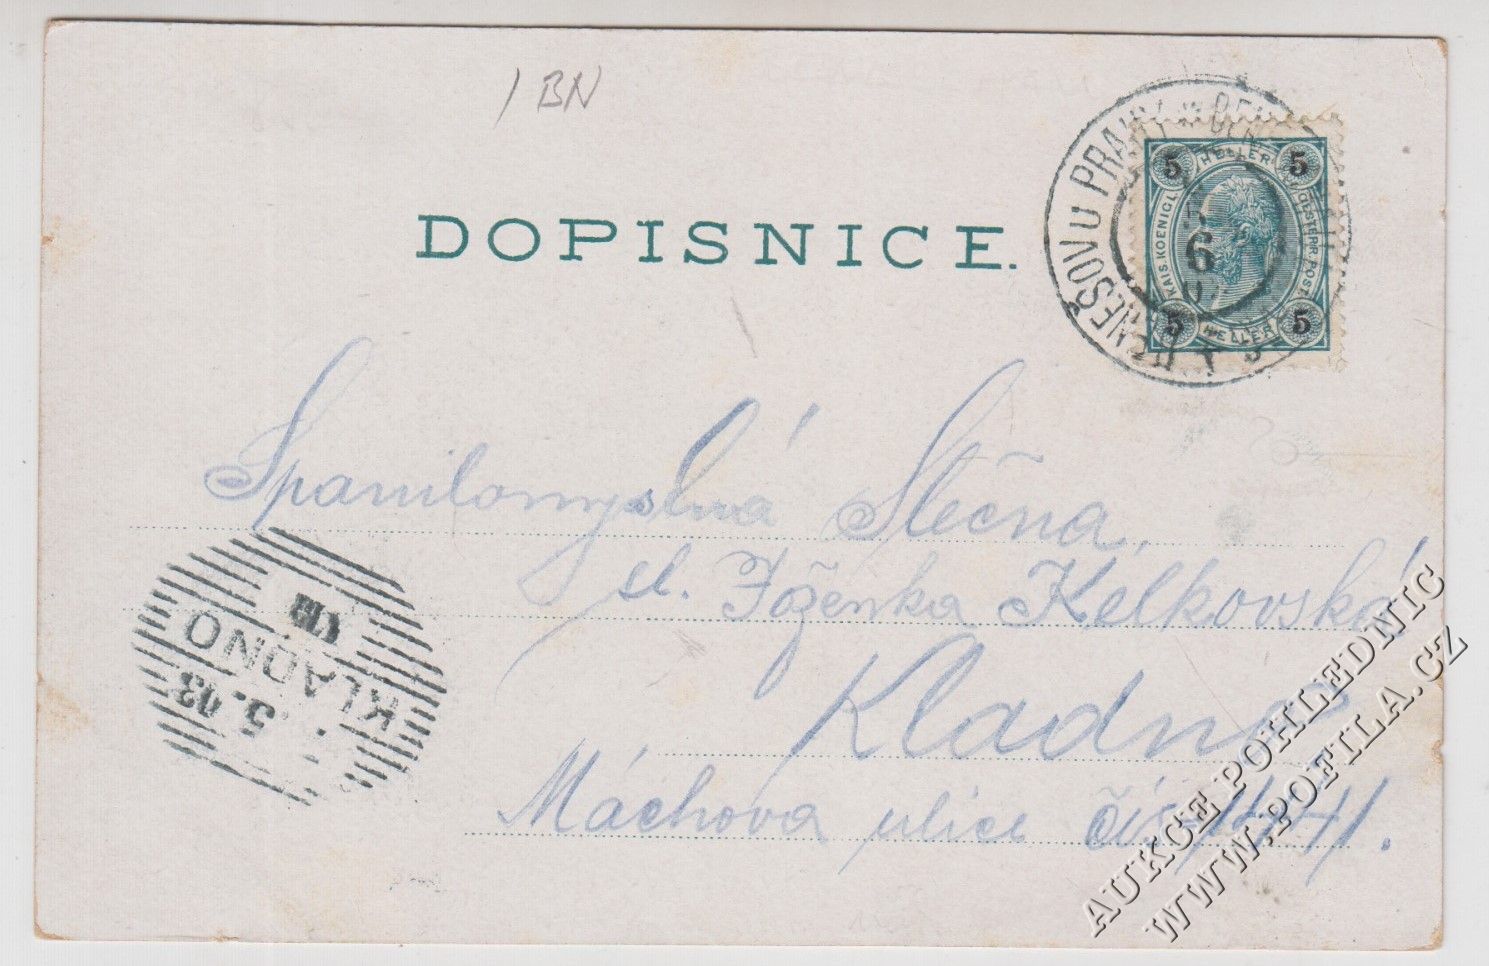 / BN
DOPISNICE.
BENEŠOV U PRAHY
6
5 HELLER 5
KAIS. KOENIGL. OESTERR. POST
5 HELLER 5
Spanilomyslná Slečna,
sl. Jóženka Kelkovská
Kladno
Máchova ulice čís.
KLADNO
5.03
VIII
AUKCE POHLEDNIC
WWW.POFILA.CZ